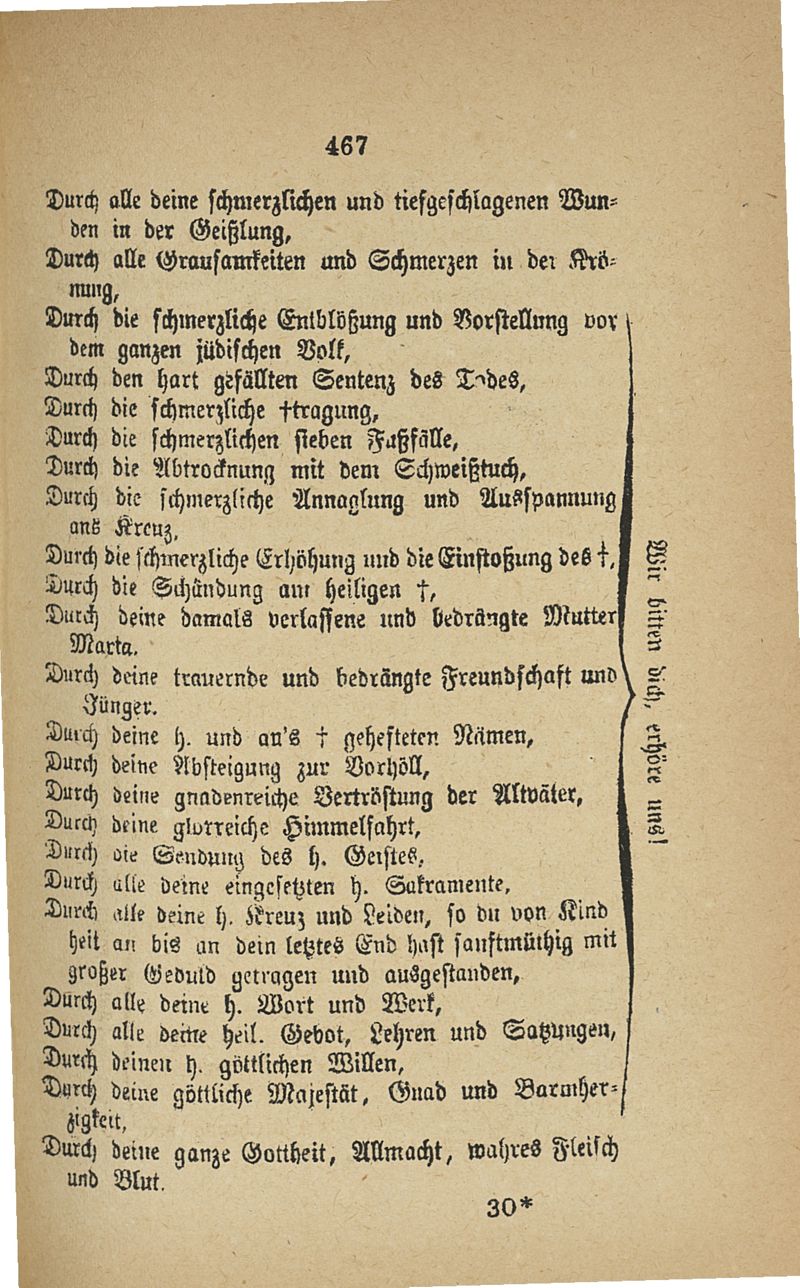 467
Durch alle deine schmerzlichen und tiefgeschlagenen Wun-
den in der Geißlung,
Durch alle Grausamkeiten und Schmerzen in der Krö-
nung,
Durch die schmerzliche Entblößung und Vorstellung vor
dem ganzen jüdischen Volk,
Durch den hart gefällten Sentenz des Todes,
Durch die schmerzliche †tragung,
Durch die schmerzlichen sieben Fußfälle,
Durch die Abtrocknung mit dem Schweißtuch,
Durch die schmerzliche Annaglung und Ausspannung
ans Kreuz,
Durch die schmerzliche Erhöhung und die Einstoßung des †,
Durch die Schändung am heiligen †,
Durch deine damals verlassene und bedrängte Mutter
Maria.
Durch deine trauernde und bedrängte Freundschaft und
Jünger.
Durch deine h. und an's † gehefteten Nämen,
Durch deine Absteigung zur Vorhöll,
Durch deine gnadenreiche Vertröstung der Altväter,
Durch deine glorreiche Himmelfahrt,
Durch die Sendung des h. Geistes,
Durch alle deine eingesetzten h. Sakramente,
Durch alle deine h. Kreuz und Leiden, so du von Kind
heit an bis an dein letztes End hast sanftmüthig mit
großer Geduld getragen und ausgestanden,
Durch alle deine h. Wort und Werk,
Durch alle deine heil. Gebot, Lehren und Satzungen,
Durch deinen h. göttlichen Willen,
Durch deine göttliche Majestät, Gnad und Barmher-
zigkeit,
Durch deine ganze Gottheit, Allmacht, wahres Fleisch
und Blut.
Wir bitten dich, erhöre uns!
30*